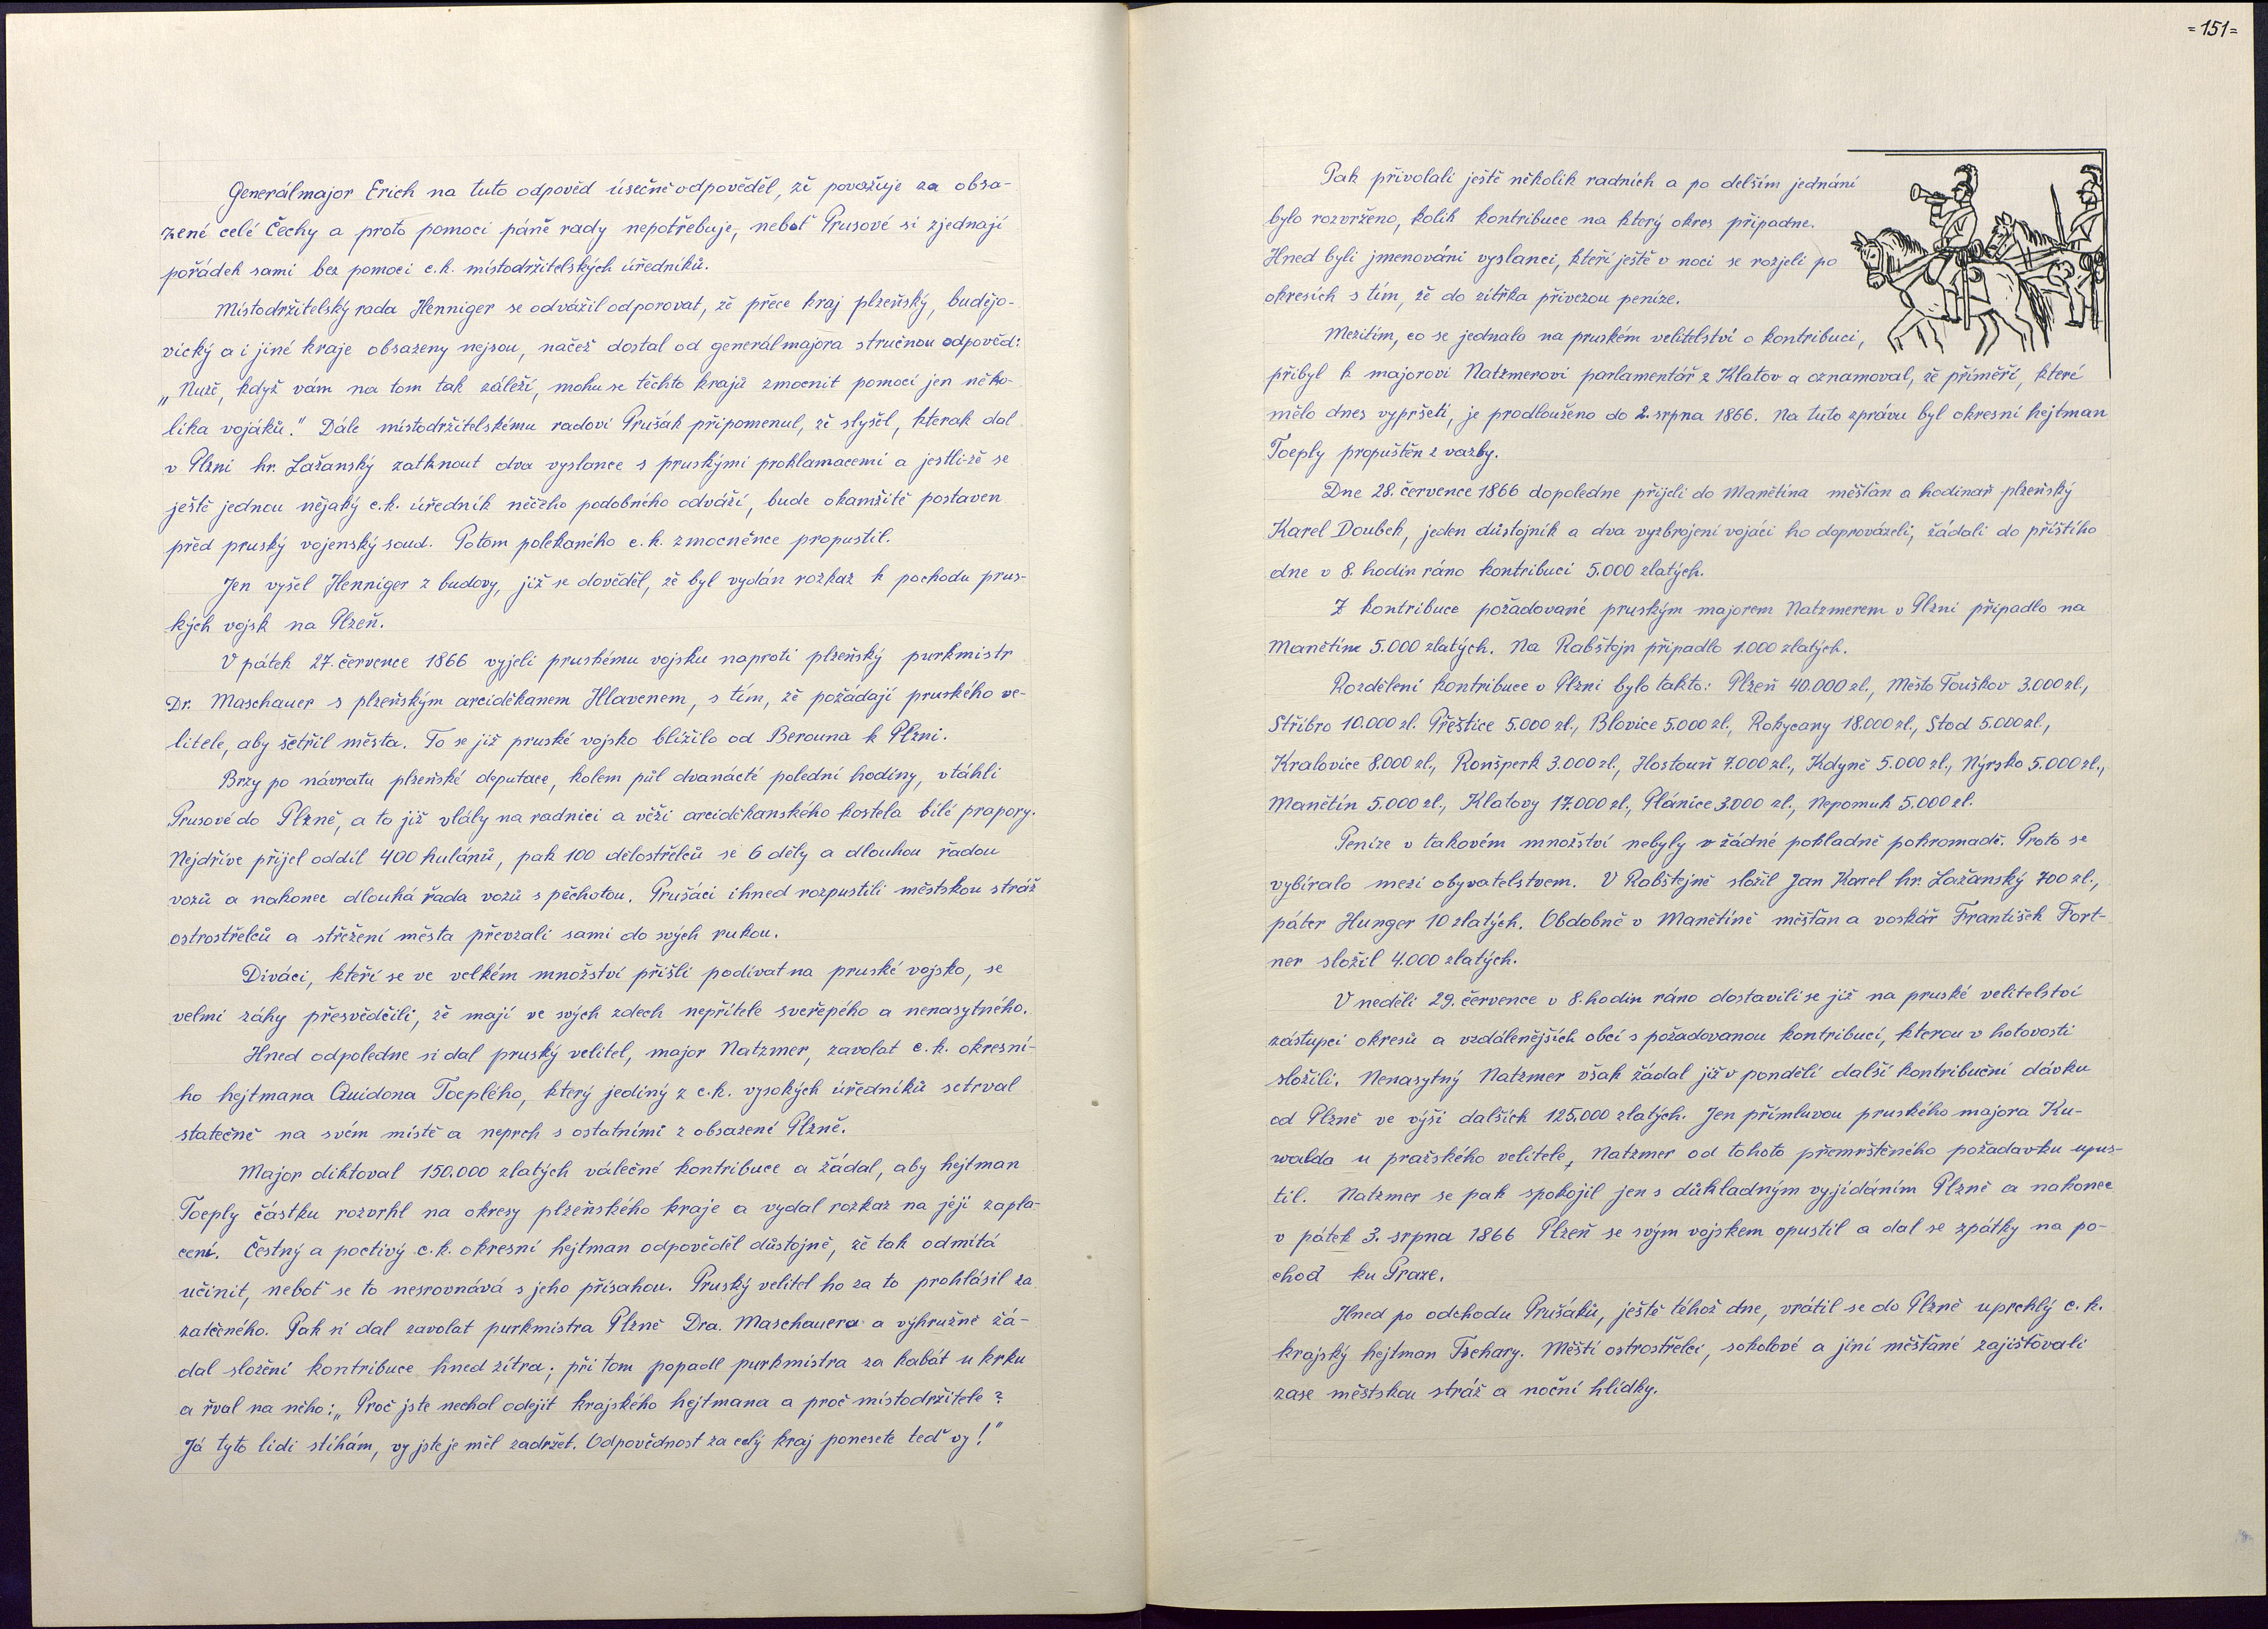 Generálmajor Erich na tuto odpověd úsečně odpověděl, že považuje za obsa-
zené celé Čechy a proto pomoci páně rady nepotřebuje, neboť Prusové si zjednají
pořádek sami bez pomoci c.k. místodržitelských úředníků.
Místodržitelský rada Henniger se odvážil odporovat, že přece kraj plzeňský, budějo-
vický a i jiné kraje obsazeny nejsou, načež dostal od generálmajora stručnou odpověd:
„Nuže, když vám na tom tak záleží, mohu se těchto krajů zmocnit pomocí jen něko-
lika vojáků." Dále místodržitelskému radovi Prušák připomenul, že slyšel, kterak dal
v Plzni hr. Lažanský zatknout dva vyslance s pruskými proklamacemi a jestli-že se
ještě jednou nějaký c.k. úředník něčeho podobného odváží, bude okamžitě postaven
před pruský vojenský soud. Potom polekaného c.k. zmocněnce propustil.
Jen vyšel Henniger z budovy, již se dověděl, že byl vydán rozkaz k pochodu prus-
kých vojsk na Plzeň.
V pátek 27. července 1866 vyjeli pruskému vojsku naproti plzeňský purkmistr
Dr. Maschauer s plzeňským arciděkanem Hlavenem, s tím, že požádají pruského ve-
litele, aby šetřil města. To se již pruské vojsko blížilo od Berouna k Plzni.
Brzy po návratu plzeňské deputace, kolem půl dvanácté polední hodiny, vtáhli
Prusové do Plzně, a to již vlály na radnici a věži arciděkanského kostela bílé prapory.
Nejdříve přijel oddíl 400 hulánů, pak 100 dělostřelců se 6 děly a dlouhou řadou
vozů a nakonec dlouhá řada vozů s pěchotou. Prušáci ihned rozpustili městskou stráž
ostrostřelců a střežení města převzali sami do svých rukou.
Diváci, kteří se ve velkém množství přišli podívat na pruské vojsko, se
velmi záhy přesvědčili, že mají ve svých zdech nepřítele sveřepého a nenasytného.
Hned odpoledne si dal pruský velitel, major Natzmer, zavolat c.k. okresní-
ho hejtmana Quidona Toeplého, který jediný z c.k. vysokých úředníků setrval
statečně na svém místě a neprch s ostatními z obsazené Plzně.
Major diktoval 150.000 zlatých válečné kontribuce a žádal, aby hejtman
Toeply částku rozvrhl na okresy plzeňského kraje a vydal rozkaz na její zapla-
cení. Čestný a poctivý c.k. okresní hejtman odpověděl důstojně, že tak odmítá
učinit, neboť se to nesrovnává s jeho přísahou. Pruský velitel ho za to prohlásil za
zatčeného. Pak si dal zavolat purkmistra Plzně Dra. Maschauera a výhružně žá-
dal složení kontribuce hned zítra; při tom popadl purkmistra za kabát u krku
a řval na něho: „Proč jste nechal odejít krajského hejtmana a proč místodržitele?
Já tyto lidi stíhám, vy jste je měl zadržet. Odpovědnost za celý kraj ponesete teď vy!"
=151=
Pak přivolali ještě několik radních a po delším jednání
bylo rozvrženo, kolik kontribuce na který okres připadne.
Hned byli jmenováni vyslanci, kteří ještě v noci se rozjeli po
okresích s tím, že do zítřka přivezou peníze.
Mezitím, co se jednalo na pruském velitelství o kontribuci,
přibyl k majorovi Natzmerovi parlamentář z Klatov a oznamoval, že příměří, které
mělo dnes vypršeti, je prodlouženo do 2. srpna 1866. Na tuto zprávu byl okresní hejtman
Toeply propuštěn z vazby.
Dne 28. července 1866 dopoledne přijeli do Manětína měšťan a hodinař plzeňský
Karel Doubek, jeden důstojník a dva vyzbrojení vojáci ho doprovázeli, žádali do příštího
dne v 8. hodin ráno kontribuci 5.000 zlatých.
Z kontribuce požadované pruským majorem Natzmerem v Plzni připadlo na
Manětín 5.000 zlatých. Na Rabštejn připadlo 1.000 zlatých.
Rozdělení kontribuce v Plzni bylo takto: Plzeň 40.000 zl., Město Touškov 3.000 zl.,
Stříbro 10.000 zl. Přeštice 5.000 zl., Blovice 5.000 zl., Rokycany 18.000 zl., Stod 5.000 zl.,
Kralovice 8.000 zl., Ronšperk 3.000 zl., Hostouň 7.000 zl., Kdyně 5.000 zl., Nýrsko 5.000 zl.,
Manětín 5.000 zl., Klatovy 17.000 zl., Plánice 3.000 zl., Nepomuk 5.000 zl.
Peníze v takovém množství nebyly v žádné pokladně pohromadě. Proto se
vybíralo mezi obyvatelstvem. V Rabštejně složil Jan Karel hr. Lažanský 700 zl.,
páter Hunger 10 zlatých. Obdobně v Manětíně měšťan a voskář František Fort-
ner složil 4.000 zlatých.
V neděli 29. července v 8. hodin ráno dostavili se již na pruské velitelství
zástupci okresů a vzdálenějších obcí s požadovanou kontribucí, kterou v hotovosti
složili. Nenasytný Natzmer však žádal již v pondělí další kontribuční dávku
od Plzně ve výši dalších 125.000 zlatých. Jen přímluvou pruského majora Ku-
walda u pražského velitele, Natzmer od tohoto přemrštěného požadavku upus-
til. Natzmer se pak spokojil jen s důkladným vyjídáním Plzně a nakonec
v pátek 3. srpna 1866 Plzeň se svým vojskem opustil a dal se zpátky na po-
chod ku Praze.
Hned po odchodu Prušáků, ještě téhož dne, vrátil se do Plzně uprchlý c.k.
krajský hejtman Tschary. Měští ostrostřelci, sokolové a jiní měšťané zajišťovali
zase městskou stráž a noční hlídky.